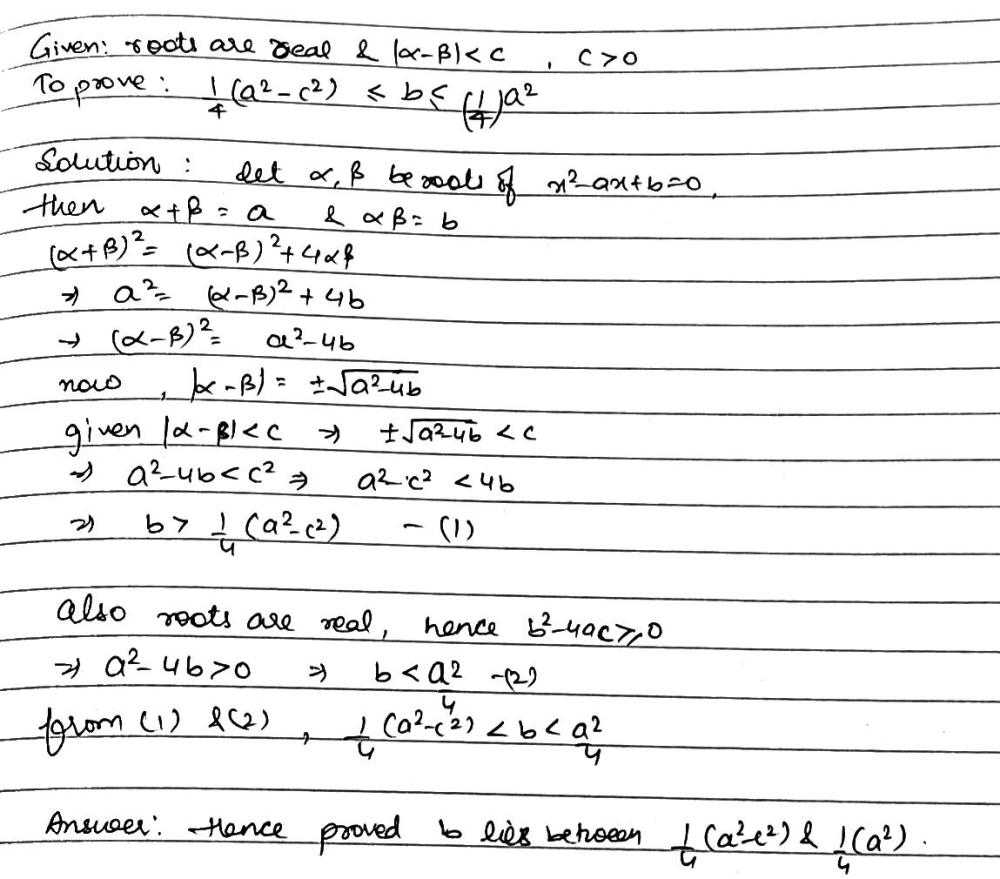 Given: roots are real & |α-β|<c , c>0
To prove : 1/4 (a²-c²) ≤ b ≤ (1/4)a²
Solution : let α, β be roots of x²-ax+b=0,
then α+β = a & αβ = b
(α+β)² = (α-β)²+4αβ
⇒ a² = (α-β)² + 4b
→ (α-β)² = a²-4b
now , |α-β| = ±√a²-4b
given |α-β|<c ⇒ ±√a²-4b < c
⇒ a²-4b<c² ⇒ a²-c² <4b
⇒ b> 1/4 (a²-c²) - (1)
also roots are real, hence b²-4ac≥0
⇒ a²-4b>0 ⇒ b< a²/4 -(2)
from (1) &(2) , 1/4 (a²-c²) < b < a²/4
Answer: Hence proved b lies between 1/4 (a²-c²) & 1/4 (a²) .